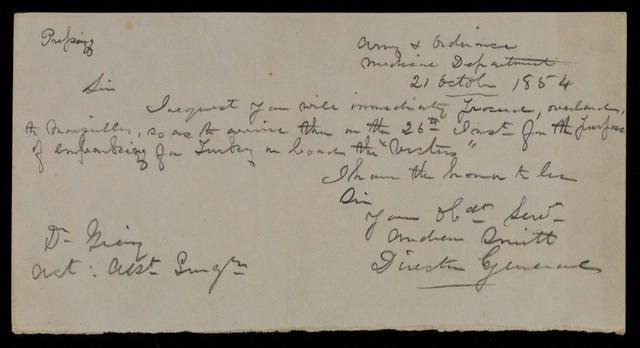 Pressing
Army & Ordnance
Medical Department
21 October 1854
Sir
I request you will immediately proceed, overland,
to Marseilles, so as to arrive there on the 26th Inst. for the purpose
of embarking for Turkey on board the "Victoria"
I have the honor to be
Sir
Your Obdt Servt
Andrew Smith
Director General
Dr
Act: Asst Surgn